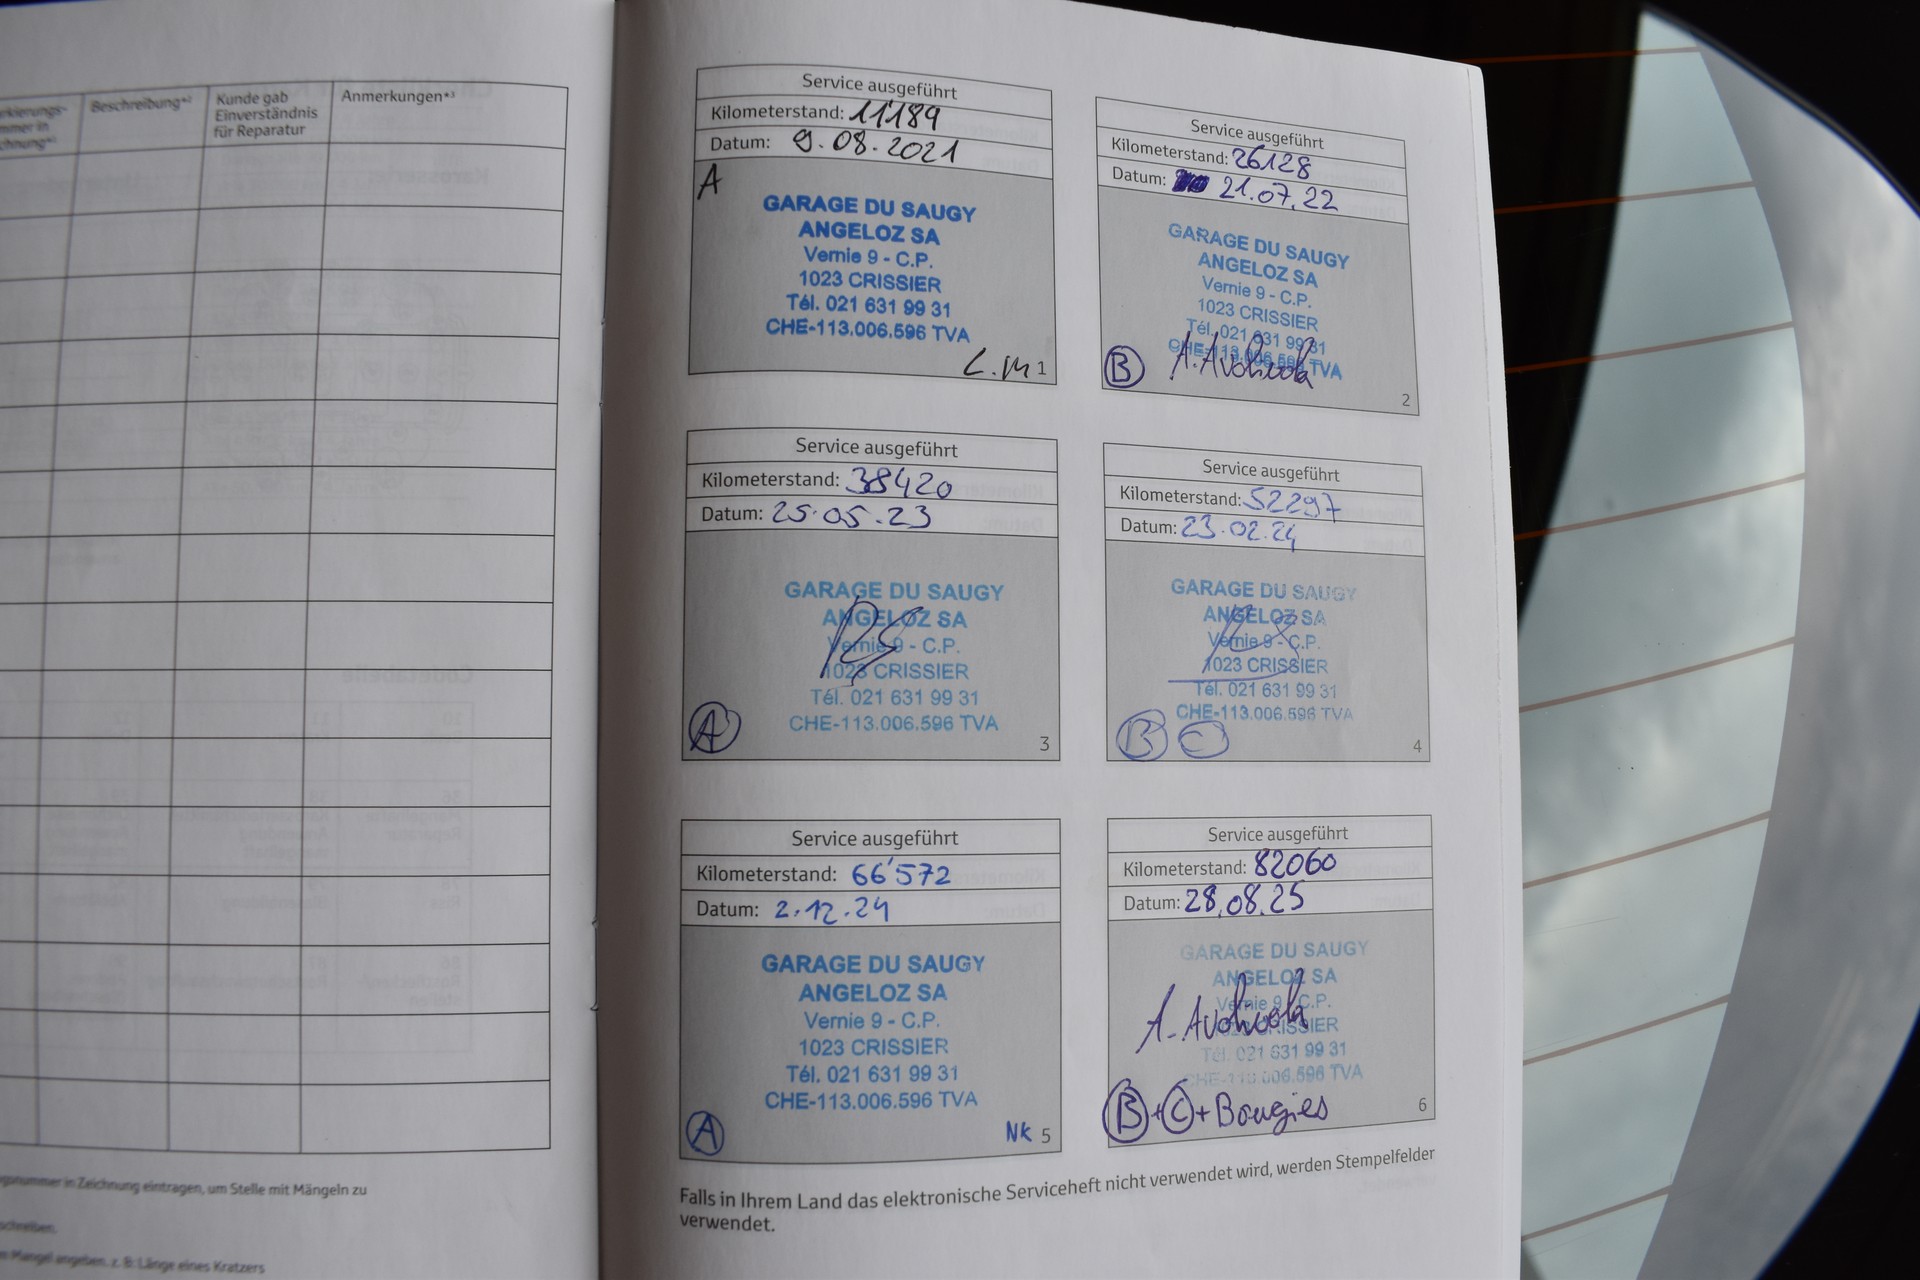 Beschreibung*²
Kunde gab
Einverständnis
für Reparatur
Anmerkungen*³
in Zeichnung eintragen, um Stelle mit Mängeln zu
Mangel angeben, z. B: Länge eines Kratzers
Service ausgeführt
Kilometerstand: 11'189
Datum: 9.08.2021
A
GARAGE DU SAUGY
ANGELOZ SA
Vernie 9 - C.P.
1023 CRISSIER
Tél. 021 631 99 31
CHE-113.006.596 TVA
L.M 1
Service ausgeführt
Kilometerstand: 26128
Datum: 21.07.22
GARAGE DU SAUGY
ANGELOZ SA
Vernie 9 - C.P.
1023 CRISSIER
Tél. 021 631 99 31
CHE-113.006.596 TVA
B
2
Service ausgeführt
Kilometerstand: 38420
Datum: 25.05.23
GARAGE DU SAUGY
ANGELOZ SA
Vernie 9 - C.P.
1023 CRISSIER
Tél. 021 631 99 31
CHE-113.006.596 TVA
A
3
Service ausgeführt
Kilometerstand: 52297
Datum: 23.02.24
GARAGE DU SAUGY
ANGELOZ SA
Vernie 9 - C.P.
1023 CRISSIER
Tél. 021 631 99 31
CHE-113.006.596 TVA
B C
4
Service ausgeführt
Kilometerstand: 66'572
Datum: 2.12.24
GARAGE DU SAUGY
ANGELOZ SA
Vernie 9 - C.P.
1023 CRISSIER
Tél. 021 631 99 31
CHE-113.006.596 TVA
A
NK 5
Service ausgeführt
Kilometerstand: 82060
Datum: 28.08.25
GARAGE DU SAUGY
ANGELOZ SA
Vernie 9 - C.P.
1023 CRISSIER
Tél. 021 631 99 31
CHE-113.006.596 TVA
B+C+Bougies
6
Falls in Ihrem Land das elektronische Serviceheft nicht verwendet wird, werden Stempelfelder
verwendet.